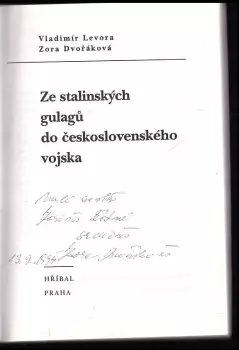 Vladimír Levora
Zora Dvořáková
Ze stalinských
gulagů
do československého
vojska
milé
srdečně
Zora Dvořáková
HŘÍBAL
PRAHA